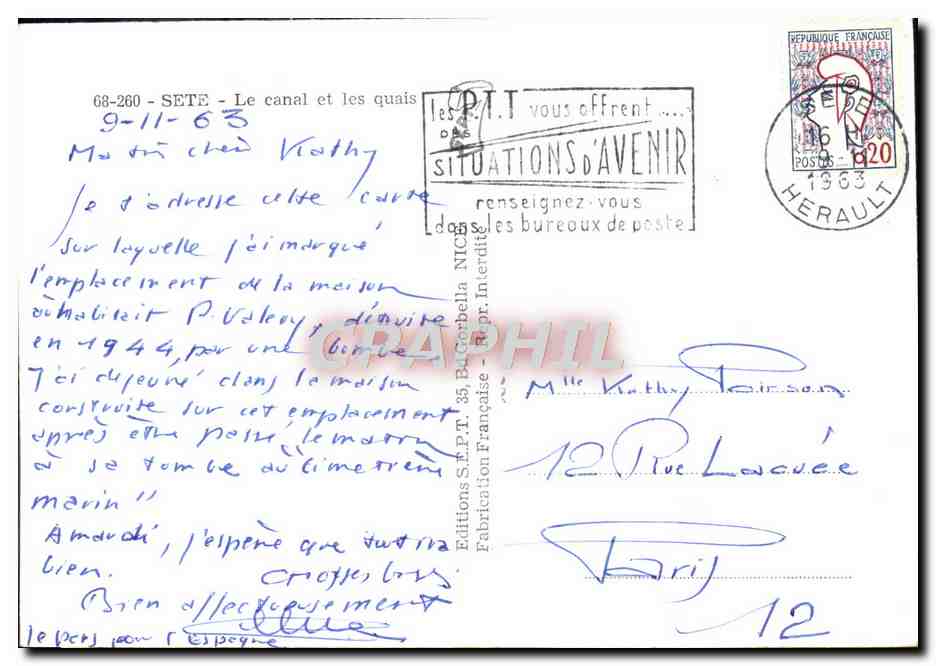 68-260 - SETE - Le canal et les quais
9-11-63
Ma très chère Kathy
Je t'adresse cette carte
sur laquelle j'ai marqué
l'emplacement de la maison
où habitait P. Valery, détruite
en 1944, par une bombe.
J'ai déjeuné dans la maison
construite sur cet emplacement
après être passé, le matin
à sa tombe au "cimetière
marin"
A mardi, j'espère que tout ira
bien.
Bien affectueusement
Je pars pour l'Espagne
Editions S.E.P.T. 35, Bd Gorbella NICE
Fabrication Française - Repr. Interdite
les P.T.T vous offrent.....
DES
SITUATIONS D'AVENIR
renseignez-vous
dans les bureaux de poste
REPUBLIQUE FRANÇAISE
POSTES 0,20
SETE
16 H
9-11
1963
HERAULT
CPAPHIL
Mlle Kathy Poirson
12 Rue Lacuée
Paris
12